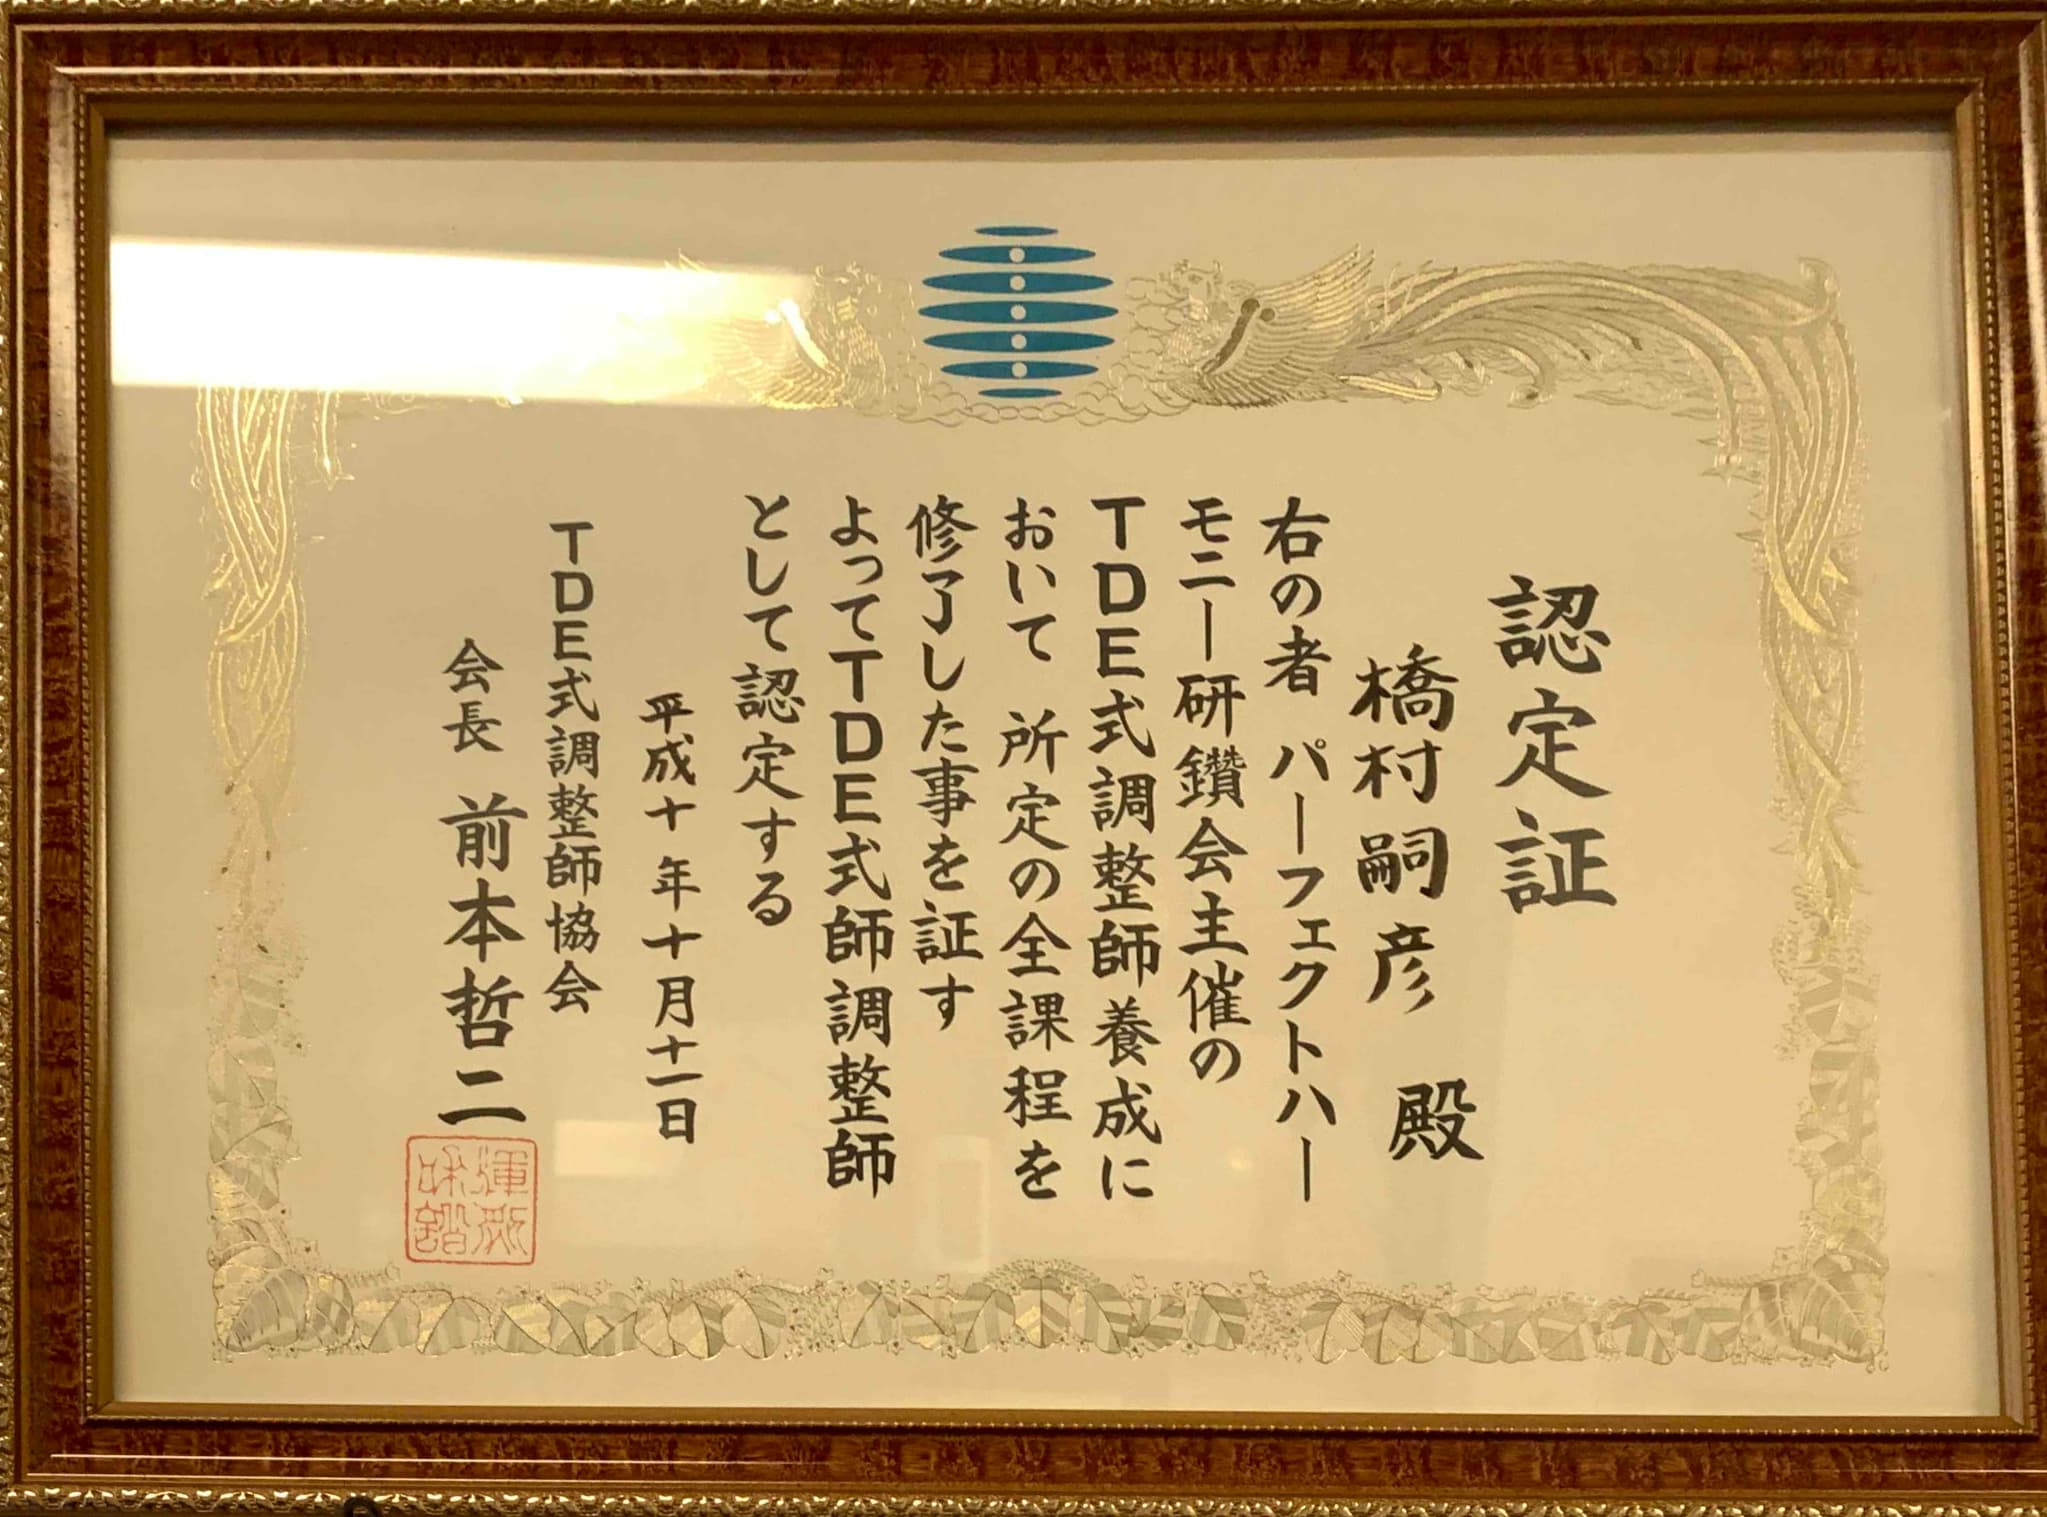 認定証
橋村嗣彦 殿
右の者 パーフェクトハー
モニー研鑽会主催の
TDE式調整師養成に
おいて 所定の全課程を
修了した事を証す
よってTDE式師調整師
として認定する
平成十年十月十一日
TDE式調整師協会
会長 前本哲二